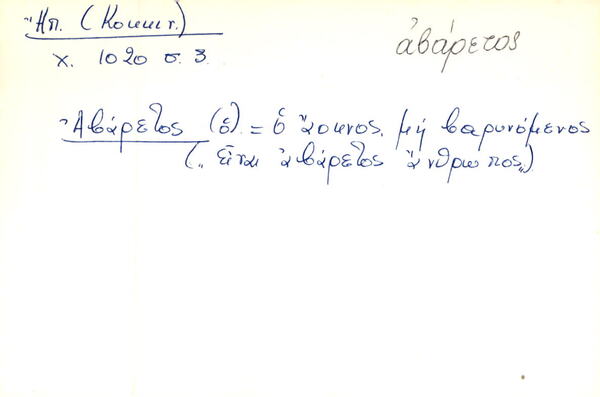 Ἤπ. (Κουκκ.)
χ. 1020 σ. 3
ἀβάρετος
Ἀβάρετος (ὁ) = ὁ ἄοκνος, μή βαρυνόμενος
(„εἶναι ἀβάρετος ἄνθρωπος„)